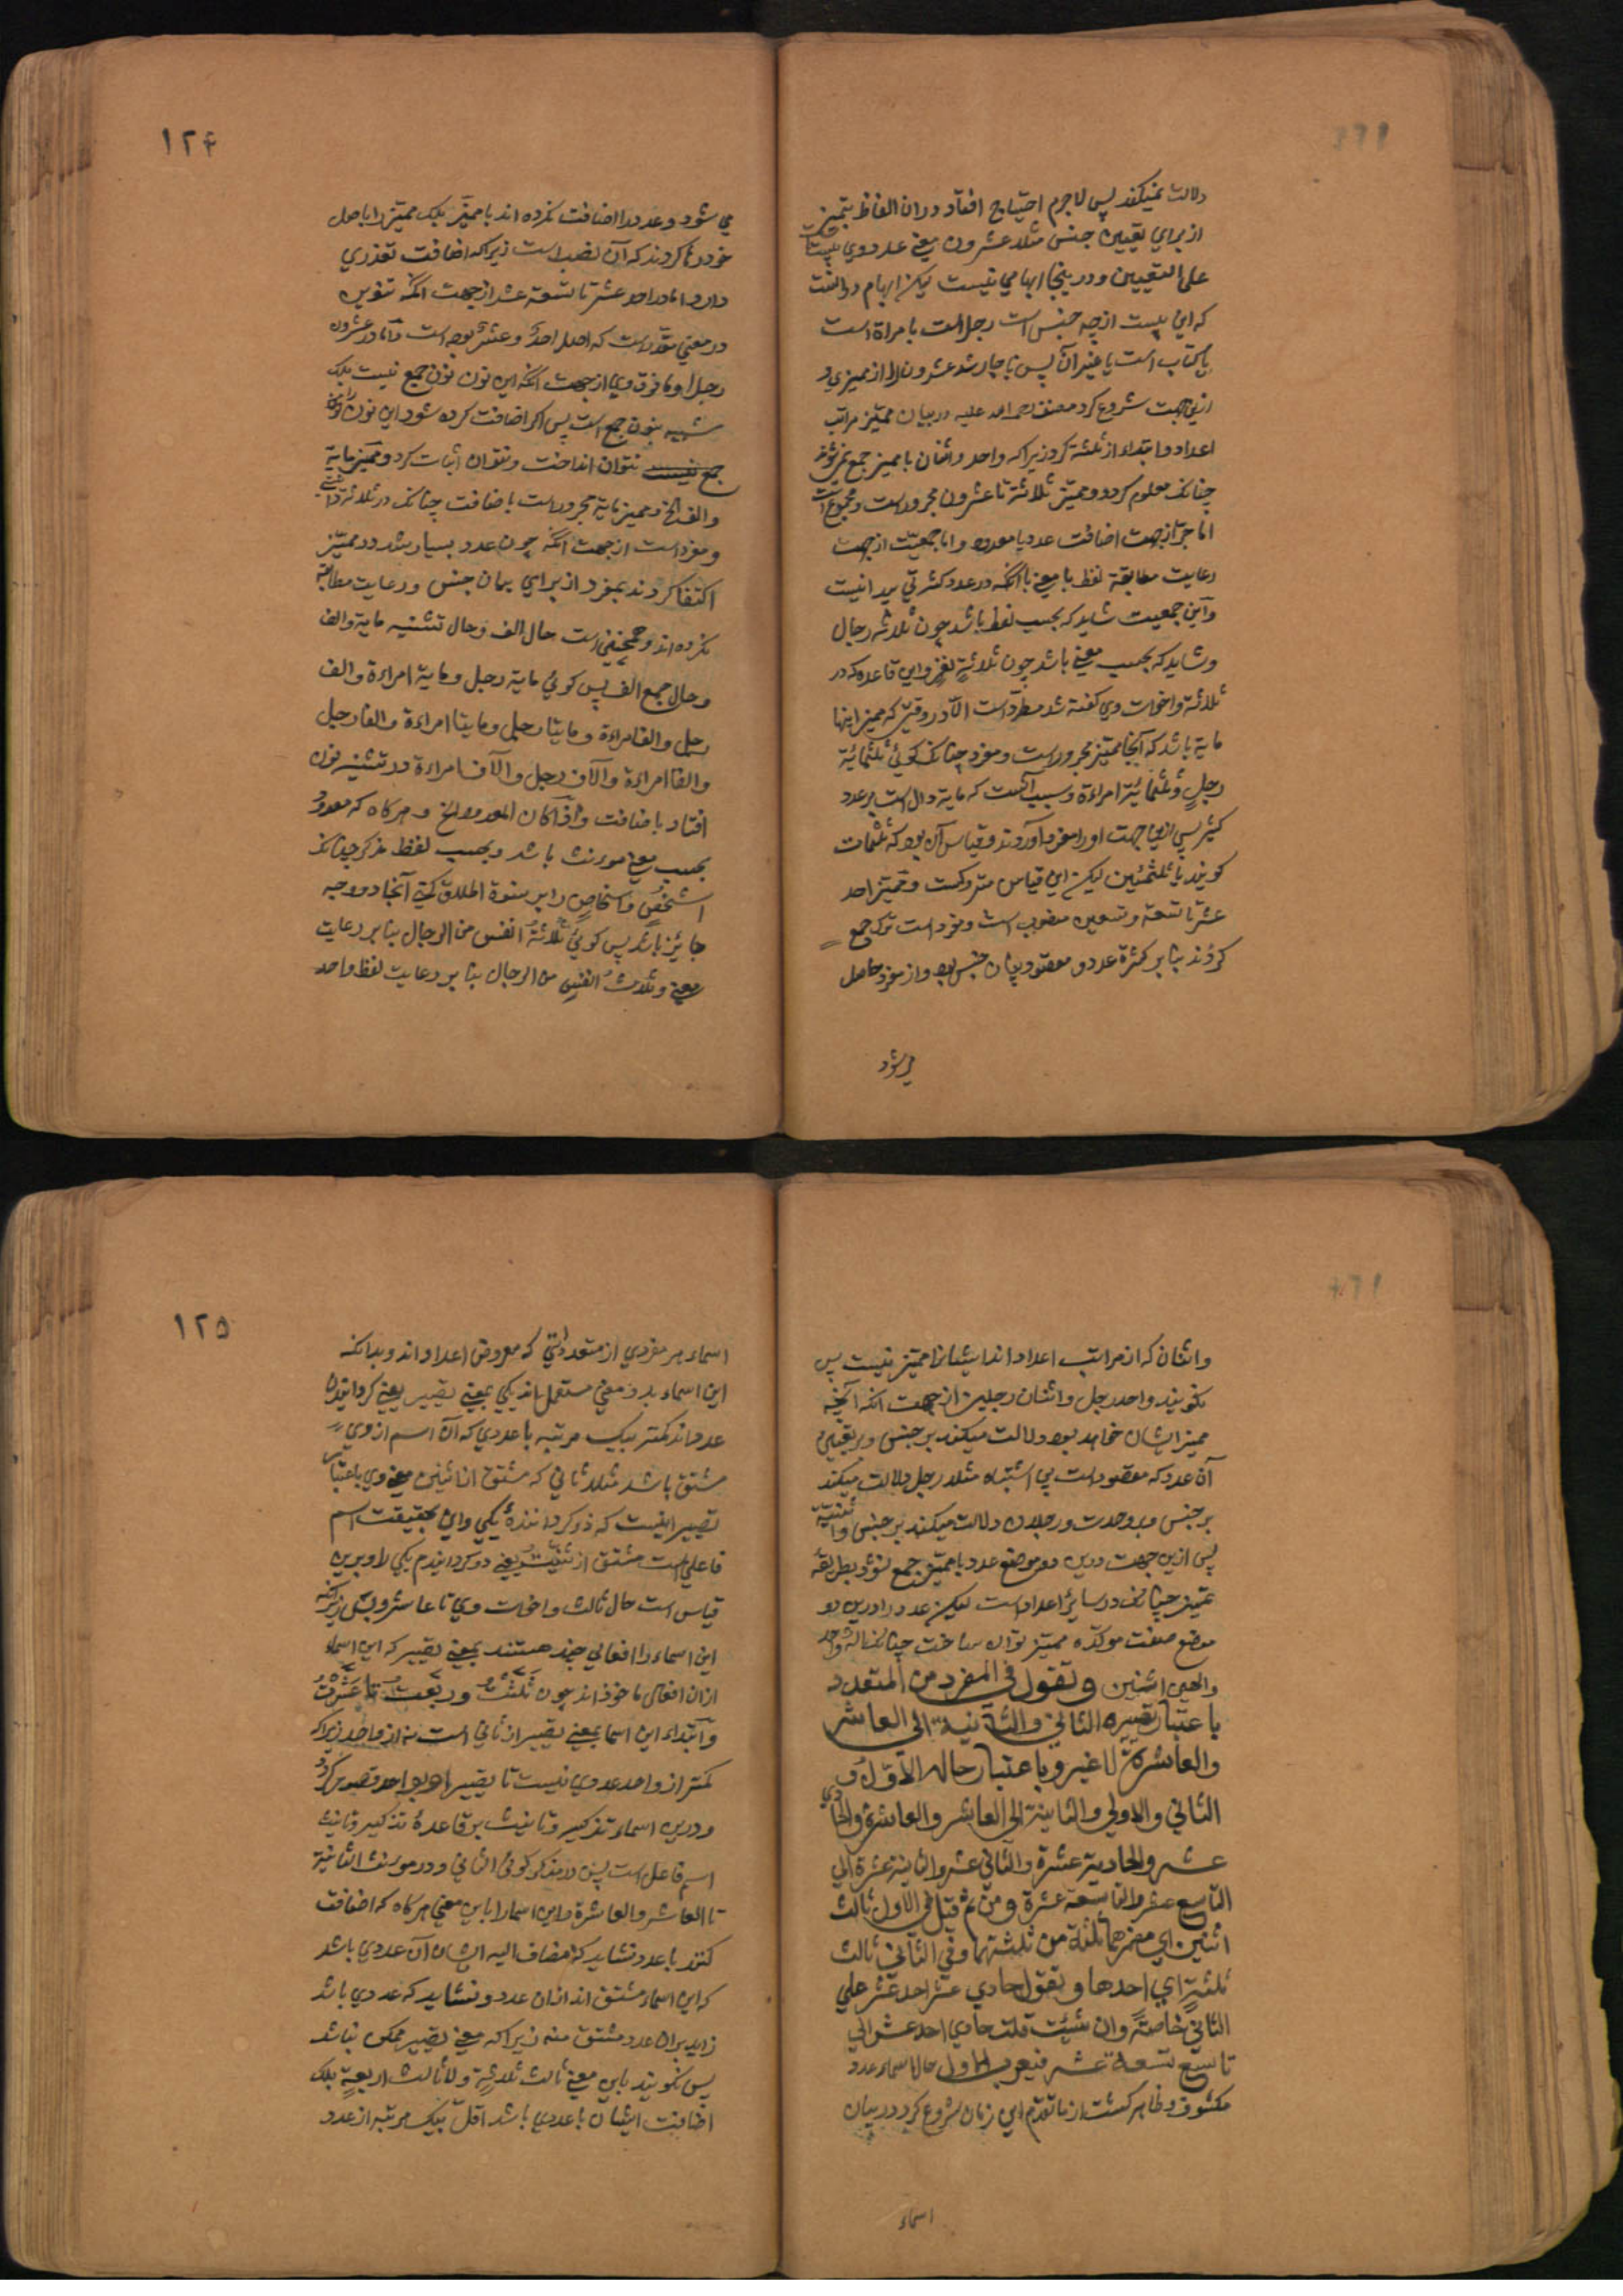 دلالت نمیکند پس لاجرم احتیاج افتاد دران الفاظ بتمیز
از برای تعیین جنس مثلا عشرون یعنی عددوی بیست
علی التعیین ودرینجا ابهامی نیست لیکن ابهام درانست
که این بیست از چه جنس است رجل است یا مراة است
یا کتاب است یا غیر آن پس ناچار شد عشرون را از ممیزی و
ازین جهت شروع کرد مصنف رحمه الله علیه در بیان ممیز مراتب
اعداد وابتداء از ثلثه کرد زیراکه واحد واثنان با ممیز جمع نمیشوند
چنانکه معلوم کردد وممیز ثلاثة تا عشرون مجرور است ومجموع است
اما جر از جهت اضافت عدد با معدود واما جمعیت از جهت
رعایت مطابقة لفظ با معنی باآنکه در عدد کثرتی پیدا نیست
واین جمعیت شاید که بحسب لفظ باشد چون ثلاثه رجال
وشاید که بحسب معنی باشد چون ثلاثة نفر واین قاعده که در
ثلاثة واخوات وی کفته شد مطرد است الا در وقتی که ممیز اینها
مایة باشد که آنجا ممیز مجرور است ومفرد چنانکه کوئی ثلثمائة
رجل وثلثمائة امراءة وسبب آنست که مایة دال است بر عدد
کثیر پس ازین جهت او را مفرد آوردند وقیاس آن بود که ثلثمات
کویند یا ثلثمئین لیکن این قیاس متروکست وممیز احد
عشر تا تسعة وتسعین منصوب است ومفرد است ترک جمع
کردند بنا بر کثرة عدد ومقصود بیان جنس بود واز مفرد حاصل
می شود
۱۲۴
می شود وعدد را اضافت نکرده اند با ممیز بلکه ممیز را باصل
خود رها کردند که آن نصب است زیراکه اضافت تعذری
دارد اما در احد عشر تا تسعة عشر از جهت آنکه تنوین
در معنی مقدر است که اصل احدٌ وعشرٌ بوده است واما در عشرون
رجلا وما فوق وی از جهت آنکه این نون نون جمع نیست بلکه
شبیه بنون جمع است پس اکر اضافت کرده شود این نون را نون
جمع نیست نتوان انداخت ونتوان اثبات کرد وممیز مایة
والف الخ وممیز مایة مجرور است باضافت چنانکه در ثلاثة دانستی
ومفرد است از جهت آنکه چون عدد بسیار شد در ممیز
اکتفا کردند بمفرد از برای بیان جنس ورعایت مطابقة
نکرده اند وهمچنین است حال الف وحال تثنیه مایة والف
وحال جمع الف پس کوئی مایة رجل ومایة امراءة والف
رجل والف امراءة ومایتا رجل ومایتا امراءة والفا رجل
والفا امراءة والآف رجل والآف امراءة ودر تثنیه نون
افتاد باضافت واذا کان المعدود الخ وهر کاه که معدود
بحسب معنی مونث باشد وبحسب لفظ مذکر چنانکه
شخص واشخاص را بر نسوة اطلاق کنی آنجا دو وجه
جایز باشد پس کوئی ثلاثة انفس من الرجال بنا بر رعایت
معنی وثلاث انفس من الرجال بنا بر رعایت لفظ واحد
واثنان که از مراتب اعداد اند ایشانرا ممیز نیست پس
نکویند واحد رجل واثنان رجلین از جهت آنکه آنچه
ممیز ایشان خواهد بود دلالت میکند بر جنس وبر تعیین
آن عدد که مقصود است بی اشتباه مثلا رجل دلالت میکند
بر جنس وبر وحدت ورجلان دلالت میکند بر جنس واثنیة
پس ازین جهت درین دو موضع عدد با ممیز جمع نشود بطریقه
تمیز چنانکه در سایر اعداد است لیکن عدد را درین دو
موضع صفت موکده ممیز توان ساخت چنانکه اله واحد
والهین اثنین وتقول فی المفرد من المتعدد
باعتبار تصییره الثانی والثانیة الی العاشر
والعاشرة لا غیر وباعتبار حاله الاول و
الثانی والاولی والثانیة الی العاشر والعاشرة والحادی
عشر والحادیة عشرة والثانی عشر والثانیة عشرة الی
التاسع عشر والتاسعة عشرة ومن ثم قیل فی الاول ثالث
اثنین ای مصیرهما ثلثة من ثلثتهما وفی الثانی ثالث
ثلثة ای احدها وتقول حادی عشر احد عشر علی
الثانی خاصة وان شئت قلت حادی احد عشر الی
تاسع تسعة عشر فیعرب الاول حال اسماء عدد
مکشوف وظاهر کشت از ما تقدم این زمان شروع کرد در بیان
اسماء
۱۲۵
اسماء هر مفردی از متعدداتی که معروض اعداد اند وبدانکه
این اسماء بدو معنی مستعمل اند یکی بمعنی تصییر یعنی کردانیدن
عدد اند کمتر بیک مرتبه با عددی که آن اسم از وی
مشتق باشد مثلا ثانی که مشتق از اثنین معنی وی باعتبار
تصییر اینست که دو کرداننده یکی واین بحقیقت اسم
فاعلی است مشتق از ثنیت یعنی دو کردانیدم یکی را وبرین
قیاس است حال ثالث واخوات وی تا عاشر وبس زیراکه
این اسماء را افعالی چند هستند بمعنی تصییر که این اسماء
ازان افعال ماخوذ اند چون ثلثت وربعت تا عشرت
وابتداء این اسما بمعنی تصییر از ثانی است نه از واحد زیراکه
کمتر از واحد عددی نیست تا تصییر او بواحد تصویر کرد
ودرین اسماء تذکیر وتانیث بر قاعدهٔ تذکیر وتانیث
اسم فاعل است پس در مذکر کوئی الثانی ودر مونث الثانیة
تا العاشر والعاشرة واین اسما را باین معنی هر کاه که اضافت
کنند با عدد نشاید که مضاف الیه ایشان آن عددی باشد
که این اسماء مشتق اند ازان عدد ونشاید که عددی باشد
زاید بران عدد مشتق منه زیراکه معنی تصییر ممکن نباشد
پس نکویند باین معنی ثالث ثلاثة ولا ثالث اربعة بلکه
اضافت ایشان با عددی باشد اقل بیک مرتبه از عدد